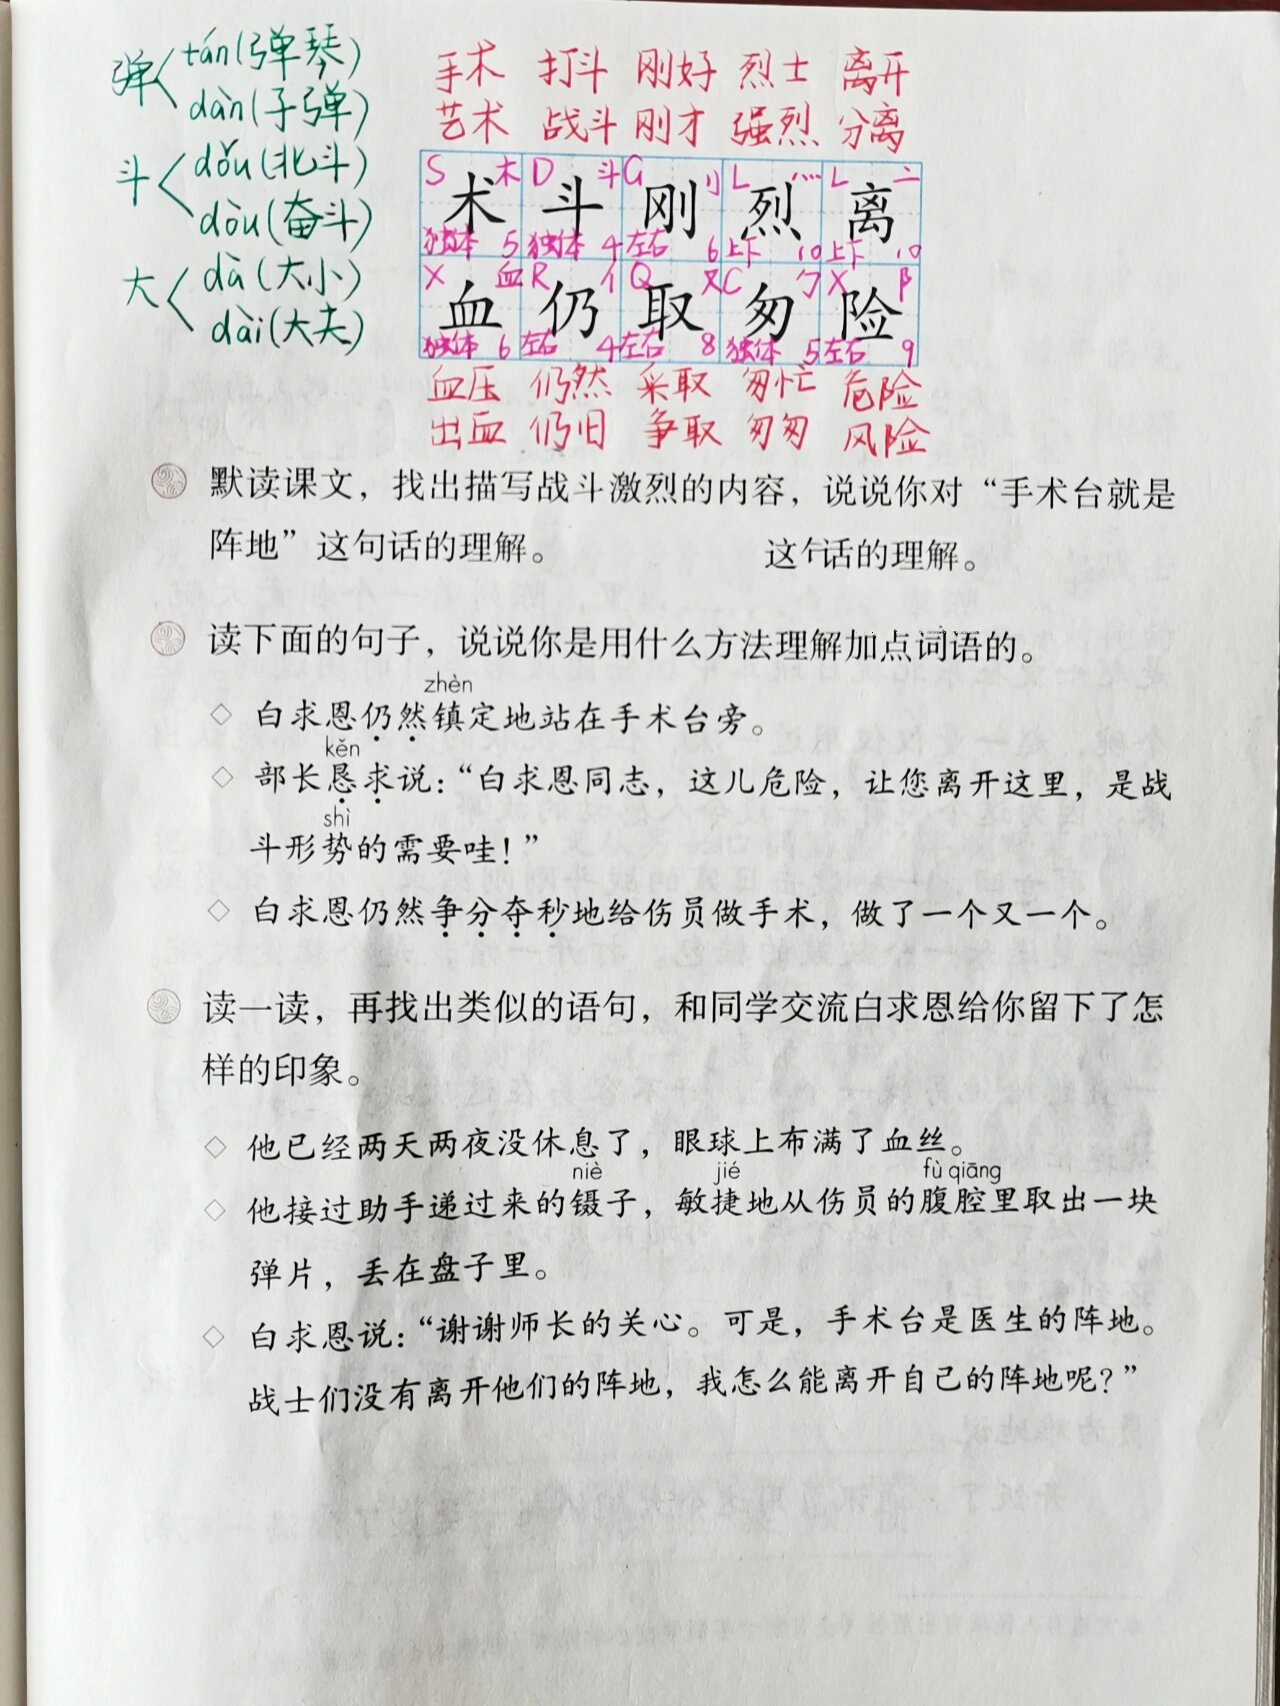 弹 tán(弹琴)
dàn(子弹)
斗 dǒu(北斗)
dòu(奋斗)
大 dà(大小)
dài(大夫)
手术 打斗 刚好 烈士 离开
艺术 战斗 刚才 强烈 分离
S 木 D 斗 G 刂 L 灬 L 亠
术 斗 刚 烈 离
独体 5 独体 4 左右 6 上下 10 上下 10
X 血 R 亻 Q 又 C 勹 X 阝
血 仍 取 匆 险
独体 6 左右 4 左右 8 独体 5 左右 9
血压 仍然 采取 匆忙 危险
出血 仍旧 争取 匆匆 风险
默读课文，找出描写战斗激烈的内容，说说你对“手术台就是
阵地”这句话的理解。 这个话的理解。
读下面的句子，说说你是用什么方法理解加点词语的。
zhèn
◇ 白求恩仍然镇定地站在手术台旁。
kěn
◇ 部长恳求说：“白求恩同志，这儿危险，让您离开这里，是战
shì
斗形势的需要哇！”
◇ 白求恩仍然争分夺秒地给伤员做手术，做了一个又一个。
读一读，再找出类似的语句，和同学交流白求恩给你留下了怎
样的印象。
◇ 他已经两天两夜没休息了，眼球上布满了血丝。
niè jié fù qiāng
◇ 他接过助手递过来的镊子，敏捷地从伤员的腹腔里取出一块
弹片，丢在盘子里。
◇ 白求恩说：“谢谢师长的关心。可是，手术台是医生的阵地。
战士们没有离开他们的阵地，我怎么能离开自己的阵地呢？”